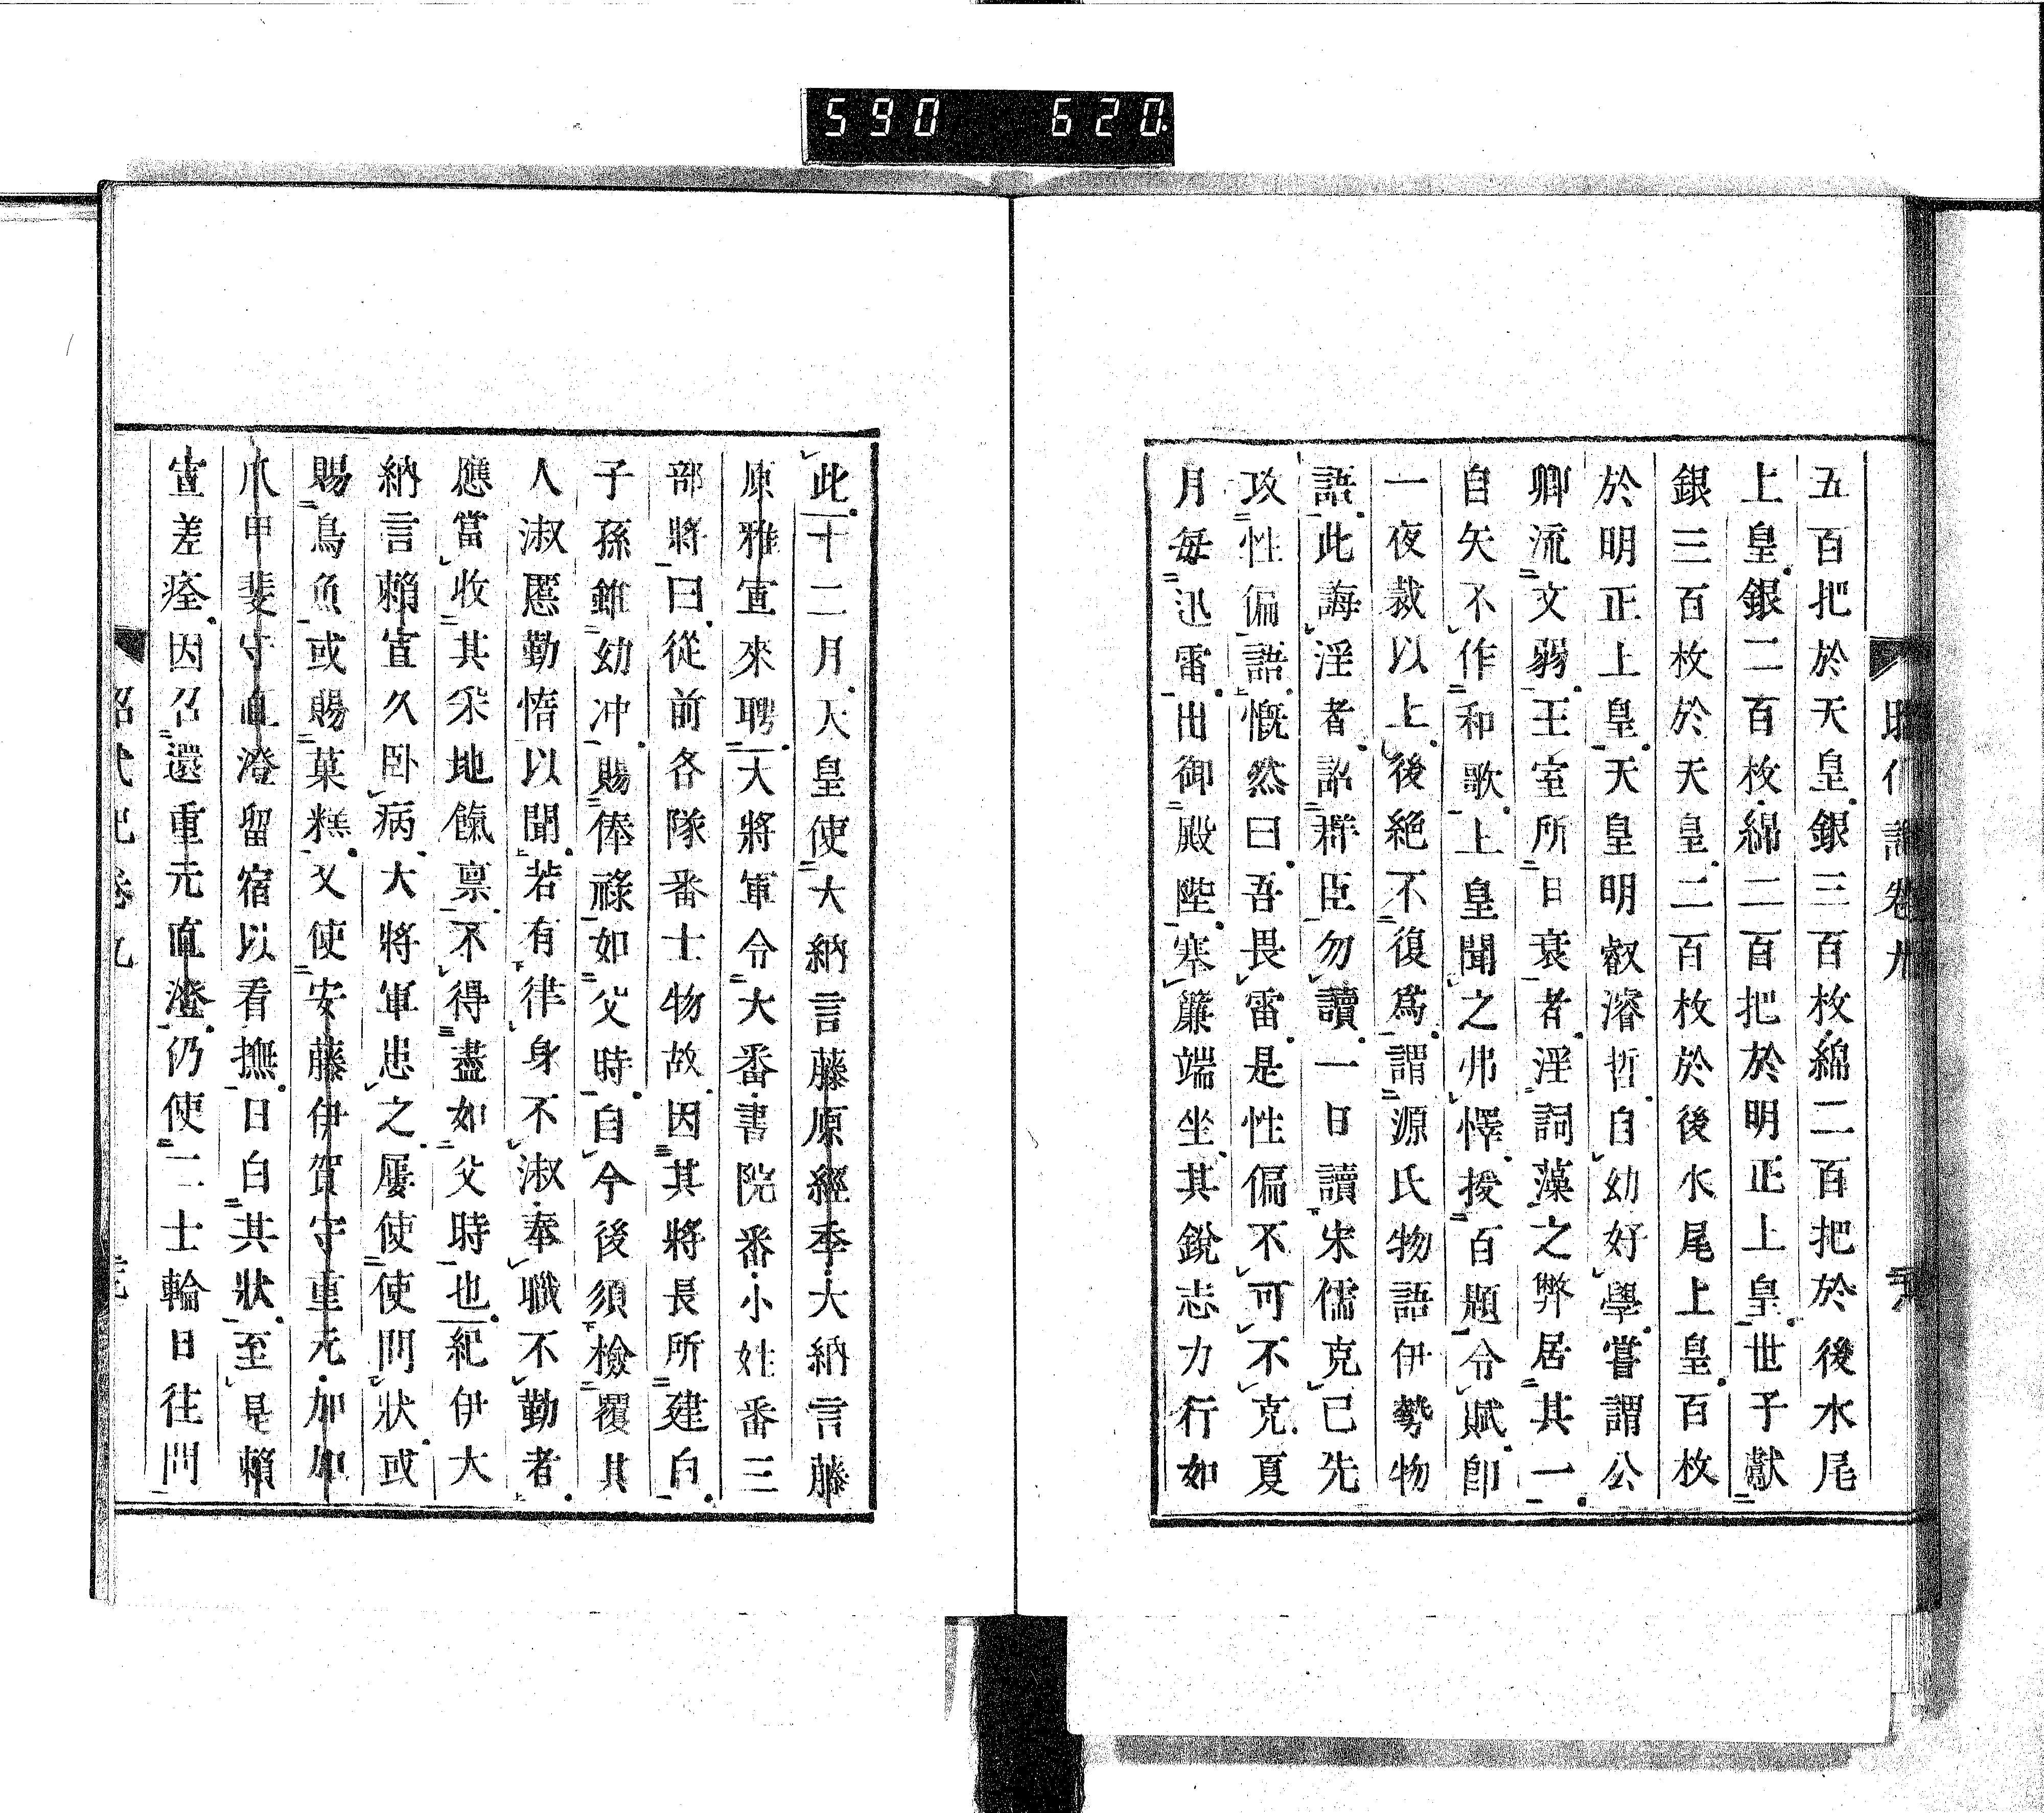 590 620
五百把於天皇銀三百枚綿二百把於後水尾
上皇銀二百枚綿二百把於明正上皇世子獻
銀三百枚於天皇二百枚於後水尾上皇百枚
於明正上皇天皇明叡濬哲自幼好學嘗謂公
卿流文弱王室所日衰者淫詞藻之弊居其一
自矢不作和歌上皇聞之弗懌授百題令賦卽
一夜裁以上後絕不復爲謂源氏物語伊勢物
語此誨淫者詔群臣勿讀一日讀宋儒克己先
攻性偏語慨然曰吾畏雷是性偏不可不克夏
月每迅雷出御殿陛寒簾端坐其銳志力行如
此十二月天皇使大納言藤原經季大納言藤
原雅宣來聘大將軍令大番書院番小姓番三
部將曰從前各隊番士物故因其將長所建白
子孫雖幼冲賜俸祿如父時自今後須檢覆其
人淑慝勤惰以聞若有律身不淑奉職不勤者
應當收其采地餼禀不得盡如父時也紀伊大
納言賴宣久臥病大將軍患之屢使使問狀或
賜鳥魚或賜菓糕又使安藤伊賀守重元加加
爪甲斐守直澄留宿以看撫日白其狀至是賴
宣差痊因召還重元直澄仍使二士輪日往問